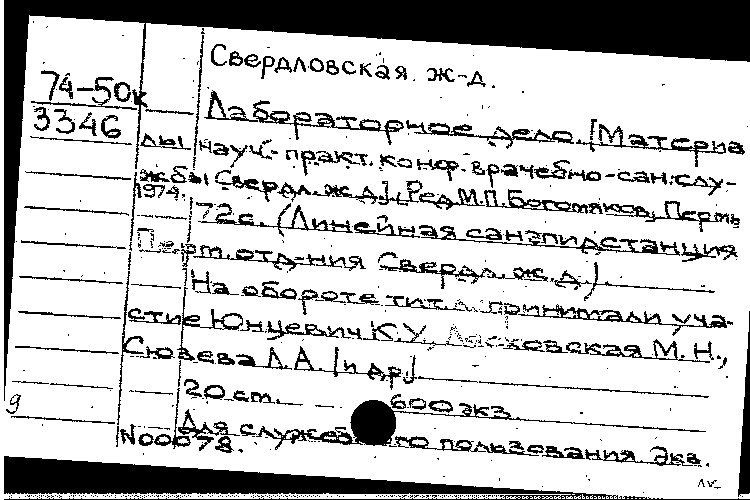 Свердловская ж-д.
74-50к
3346
Лабораторное дело. [Материа
лы науч.-практ. конф. врачебно-сан. слу-
жбы Свердл. ж.д.]. Ред. М.П. Богомяков, Пермь
1974.
72 с. (Линейная санэпидстанция
Перм. отд-ния Свердл. ж.д.).
На обороте тит. л. принимали уча-
стие Юнцевич К.У., Лясковская М.Н.,
Сюзева Л.А. [и др.]
20 см. 600 экз.
Для служебного пользования. Экз.
N00078.
g